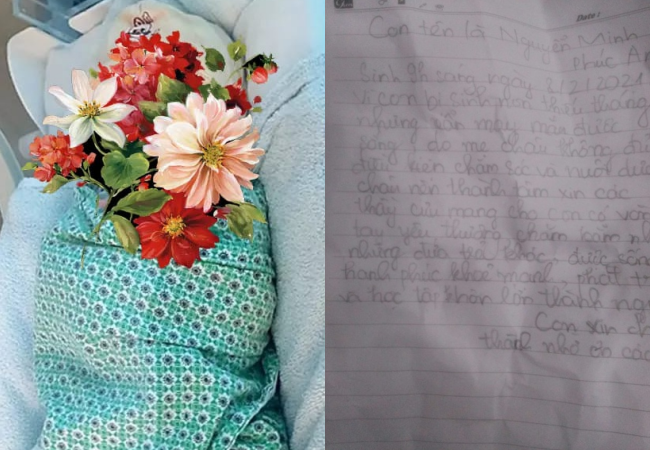 Date:
Con tên là Nguyễn Minh
Phúc An
Sinh 9h sáng ngày 8/2/2021
Vì con bị sinh non thiếu tháng
nhưng vẫn may mắn được
sống, do mẹ cháu không đủ
điều kiện chăm sóc và nuôi dưỡ
cháu nên thành tâm xin các
thầy cưu mang cho con có vòng
tay yêu thương chăm
những đứa trẻ khác, được sống
hạnh phúc khoẻ mạnh, phát tr
và học tập khôn lớn thành ng
Con xin ch
thành nhớ ơn các